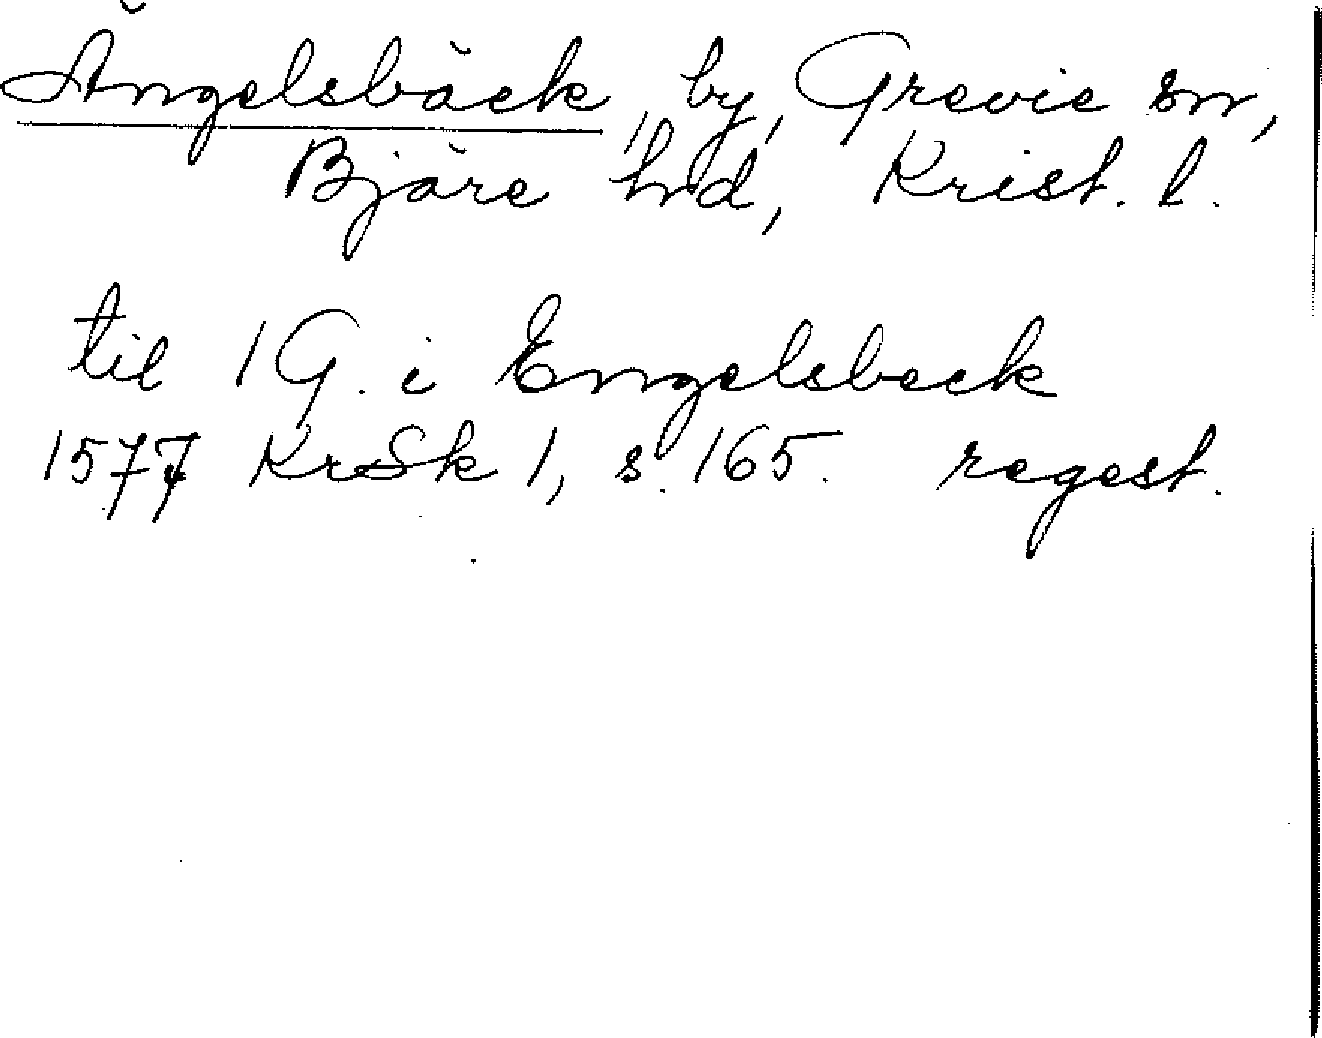 Ängelsbäck, by, Grevie sn,
Bjäre hd, Krist. l.
til 1 G. i Engelsbeck
1577 KrSk 1, s. 165. regest.